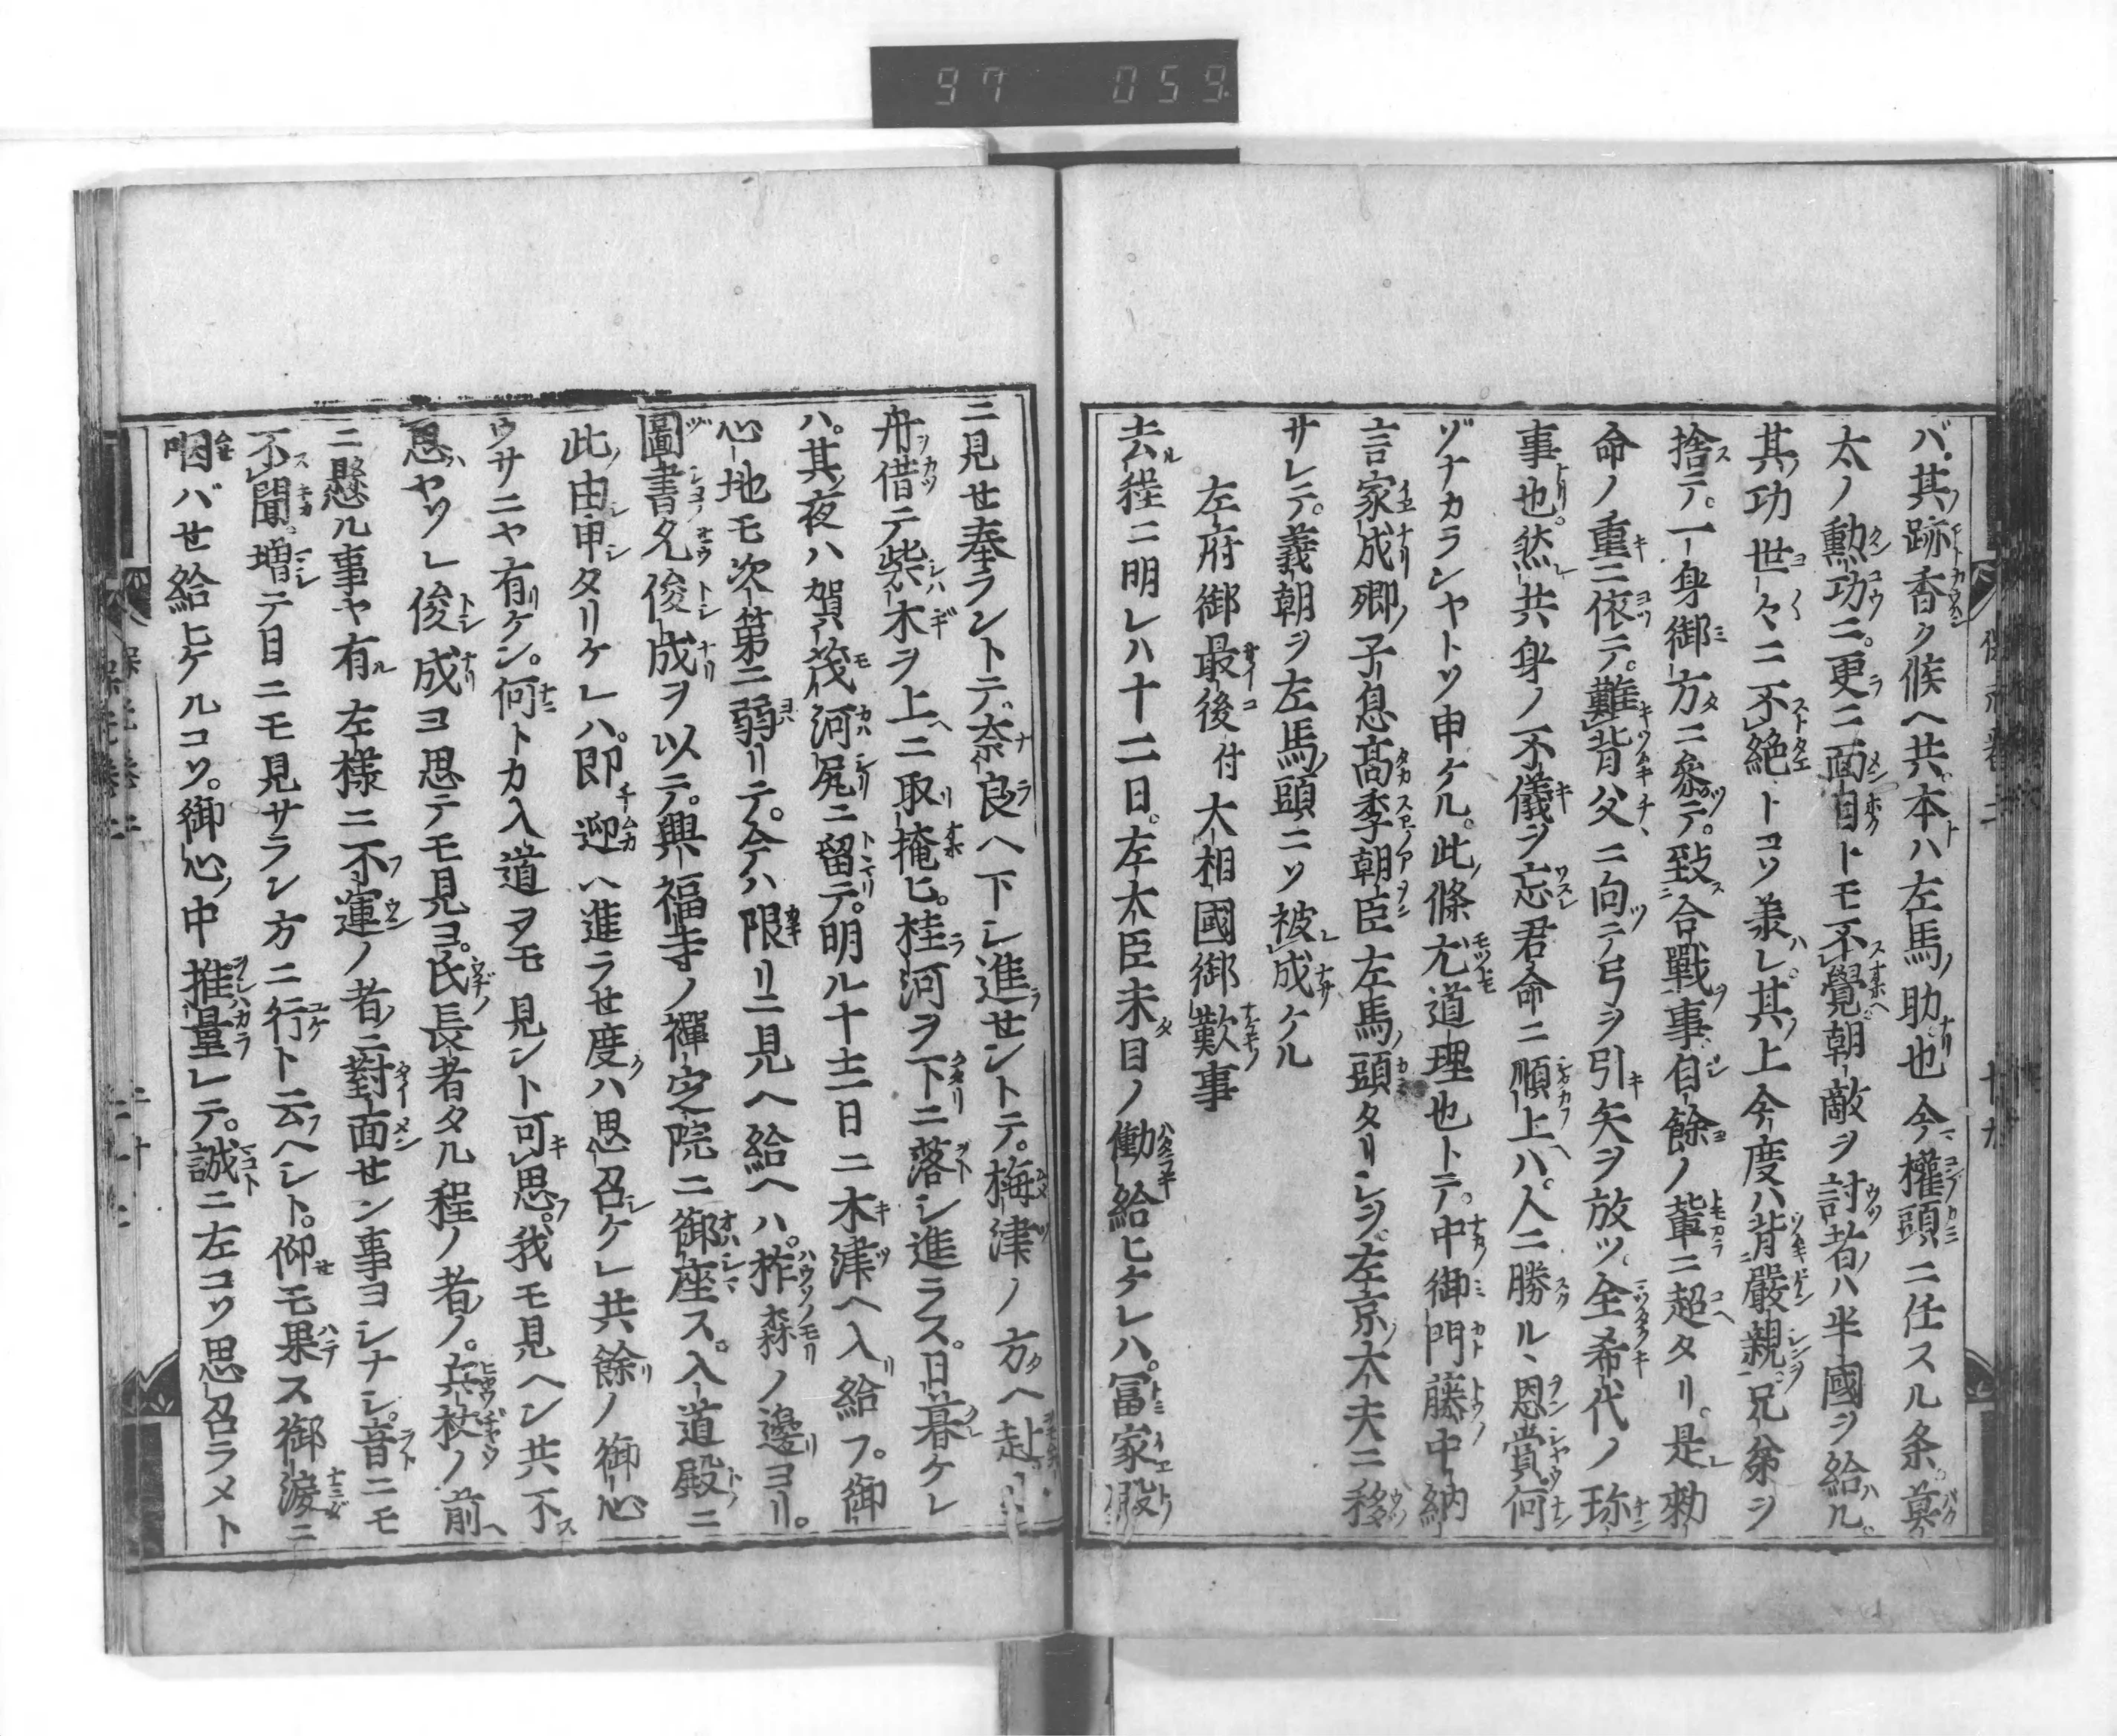 97 059
バ其跡香ク候ヘ共本ハ左馬助也今權頭ニ任スル条莫
太ノ勲功ニ更ニ面目トモ不覺朝敵ヲ討者ハ半國ヲ給ル
其功世々ニ不絶トコソ兼レ其上今度ハ背嚴親兄弟ヲ
捨テ一身御方ニ參テ致合戰事自餘ノ輩ニ超タリ是勅
命ノ重ニ依テ難背父ニ向テ弓ヲ引矢ヲ放ツ全希代ノ珎
事也然共身ノ不儀ヲ忘君命ニ順上ハ人ニ勝ルヽ恩賞何
ゾナカランヤトソ申ケル此條尤道理也トテ中御門藤中納
言家成卿ノ子息髙季朝臣左馬頭タリシヲ左京大夫ニ移
サレテ義朝ヲ左馬頭ニソ被成ケル
左府御最後付大相國御歎事
去程ニ明レハ十二日左大臣未目ノ働給ヒケレハ冨家殿
ニ見せ奉ラントテ奈良ヘ下シ進せントテ梅津ノ方ヘ赴
舟借テ柴木ヲ上ニ取掩ヒ桂河ヲ下ニ落シ進ラス日暮ケレ
ハ其夜ハ賀茂河尻ニ留テ明ル十三日ニ木津ヘ入給フ御
心地モ次第ニ弱リテ今ハ限リニ見ヘ給ヘハ柞森ノ邊ヨリ
圖書允俊成ヲ以テ興福寺ノ禪定院ニ御座ス入道殿ニ
此由申タリケレハ即迎ヘ進ラせ度ハ思召ケレ共餘ノ御心
ウサニヤ有ケン何トカ入道ヲモ見ント可思我モ見ヘン共不
思ヤソレ俊成ヨ思テモ見ヨ氏長者タル程ノ者ノ兵杖ノ前
ニ懸ル事ヤ有左様ニ不運ノ者ニ對面せン事ヨシナシ音ニモ
不聞増テ目ニモ見サラン方ニ行ト云ヘシト仰モ果ス御涙ニ
咽バせ給ヒケルコソ御心中推量レテ誠ニ左コソ思召ラメト